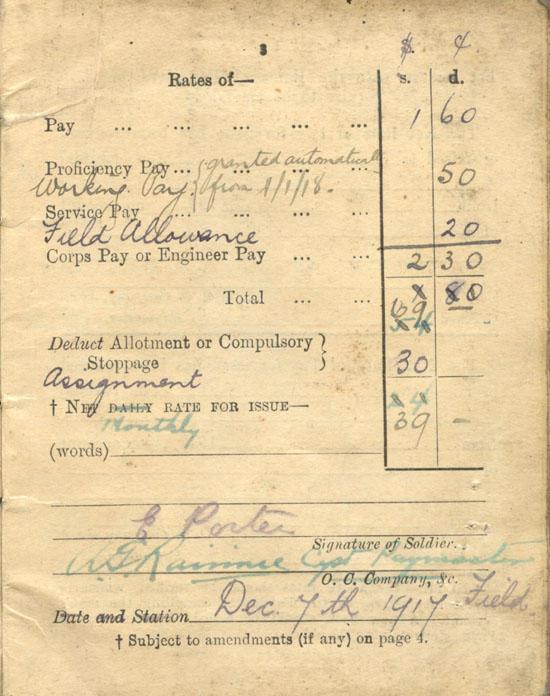 3
$ ¢
Rates of— s. d.
Pay ... ... ... ... ... 1 60
Proficiency Pay ... {granted automatically
Working Pay from 1/1/18. 50
Service Pay ... ... ... ...
Field Allowance 20
Corps Pay or Engineer Pay ... ... 2 30
Total ... ...
69
Deduct Allotment or Compulsory }
Stoppage 30
Assignment
† NET DAILY RATE FOR ISSUE—
Monthly 39 –
(words)
E Porter
Signature of Soldier.
Capt Paymaster
O. C. Company, &c.
Date and Station Dec. 7th 1917 Field.
† Subject to amendments (if any) on page 4.